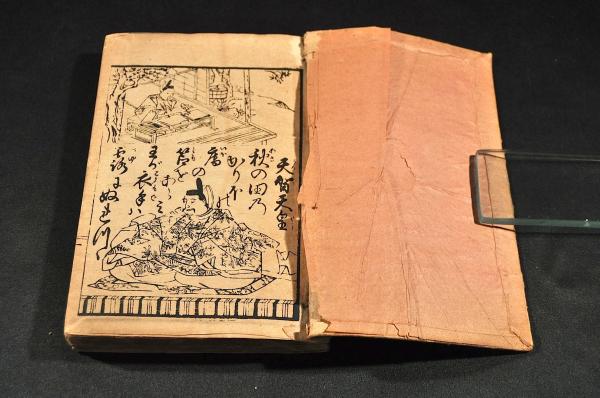 天智天皇
秋の田乃
かりほの
庵の
苫を
あらみ
わが衣手ハ
露にぬれつゝ